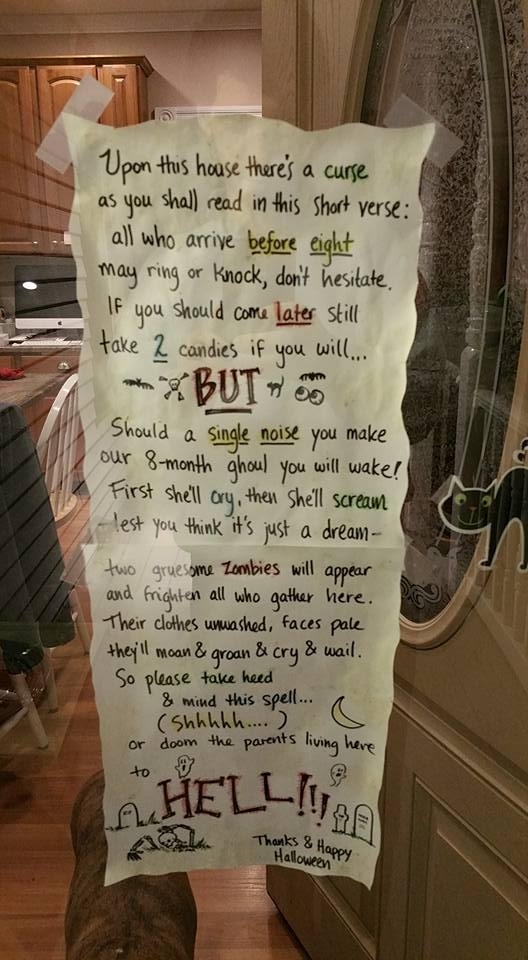 Upon this house there's a curse
as you shall read in this short verse:
all who arrive before eight
may ring or knock, don't hesitate.
If you should come later still
take 2 candies if you will...
BUT
Should a single noise you make
our 8-month ghoul you will wake!
First she'll cry, then she'll scream
-lest you think it's just a dream-
two gruesome Zombies will appear
and frighten all who gather here.
Their clothes unwashed, faces pale
they'll moan & groan & cry & wail.
So please take heed
& mind this spell...
(Shhhhh....)
or doom the parents living here
to
HELL!!!
Thanks & Happy
Halloween